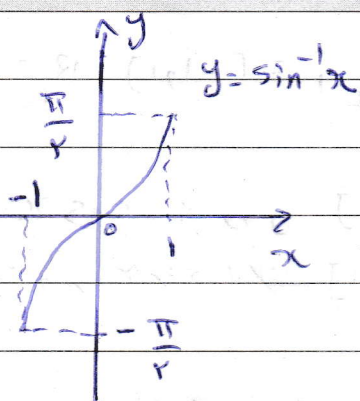 y
y = sin⁻¹x
π/۲
-1
0
1
x
-π/۲